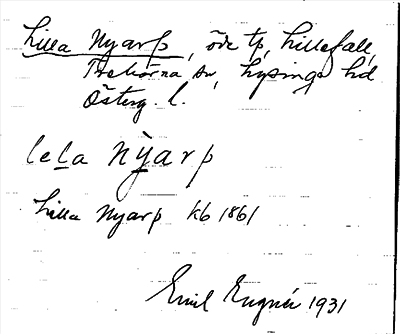 Lilla Nyarp, öde tp, Lillefall,
Trehörna sn, Lysings hd
Österg. l.
lela nyarp
Lilla Nyarp kb 1861
Emil Engnér 1931